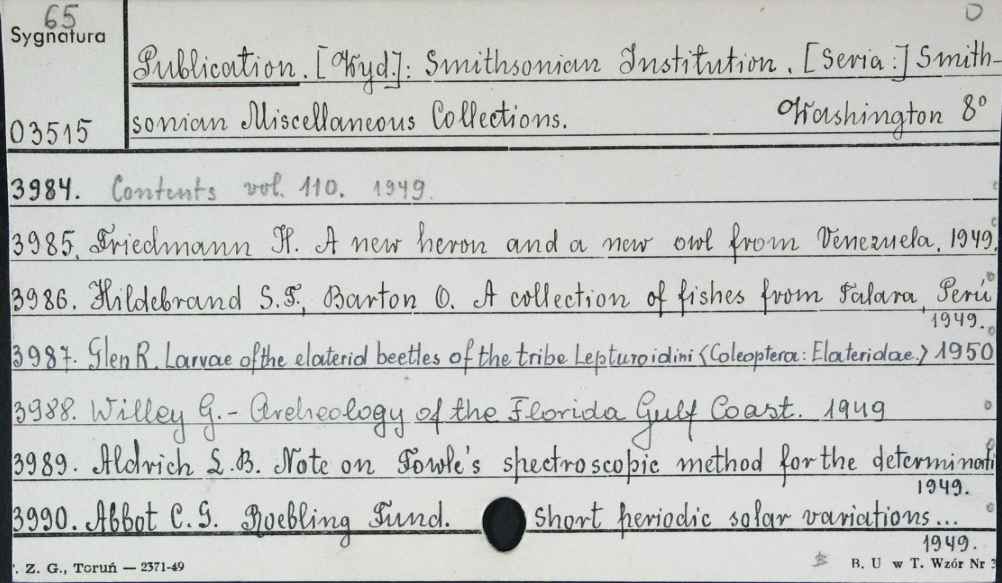 65
O
Sygnatura
Publication. [Wyd.]: Smithsonian Institution. [Seria:] Smith-
03515 sonian Miscellaneous Collections. Washington 8°
3984. Contents vol. 110. 1949.
3985. Friedmann H. A new heron and a new owl from Venezuela. 1949.
3986. Hildebrand S.F., Barton O. A collection of fishes from Talara, Perú
1949.
3987. Glen R. Larvae of the elaterid beetles of the tribe Lepturoidini <Coleoptera: Elateridae.> 1950
3988. Willey G. - Archeology of the Florida Gulf Coast. 1949
3989. Aldrich L.B. Note on Fowle's spectroscopic method for the determinati
1949.
3990. Abbot C.G. Roebling Fund. Short periodic solar variations...
1949.
. Z. G., Toruń — 2371-49 B. U w T. Wzór Nr 3